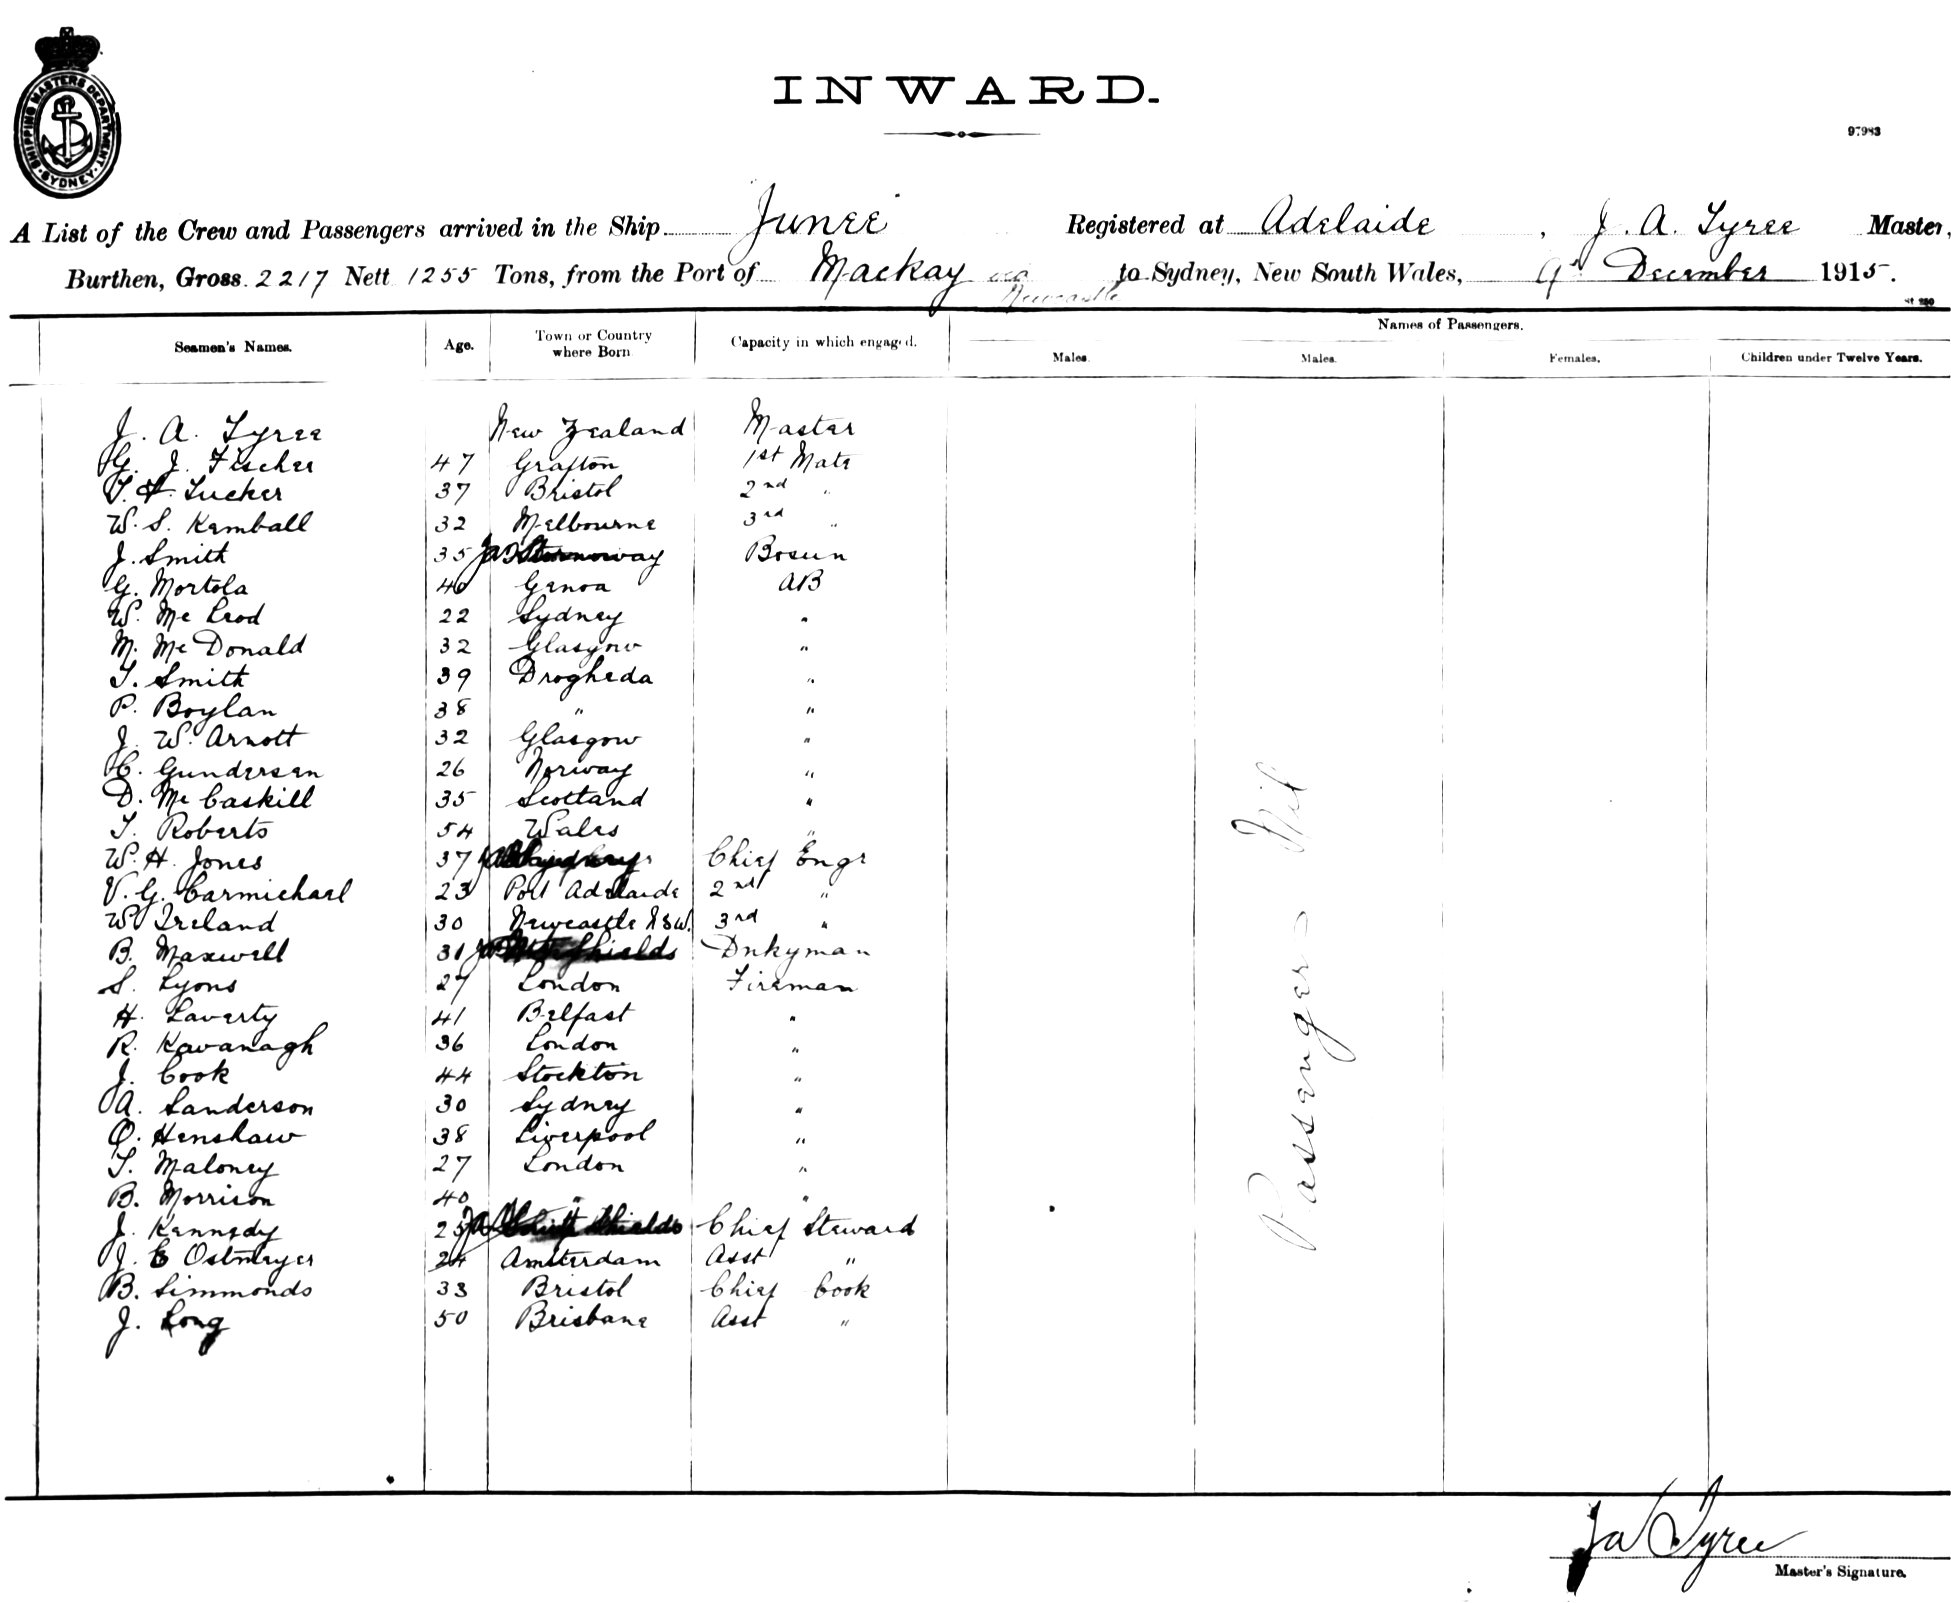 SHIPPING MASTERS DEPARTMENT. SYDNEY.
INWARD.
97983
A List of the Crew and Passengers arrived in the Ship Junee Registered at Adelaide, J. A. Tyree Master,
Burthen, Gross 2217 Nett 1255 Tons, from the Port of Mackay via Newcastle to Sydney, New South Wales, 9th December 1915.
Seamen's Names. Age. Town or Country where Born Capacity in which engaged. Names of Passengers.
Males. Males. Females. Children under Twelve Years.
J. A. Tyree New Zealand Master
G. J. Fischer 47 Grafton 1st Mate
T. H. Tucker 37 Bristol 2nd "
W. S. Kemball 32 Melbourne 3rd "
J. Smith 35 Stornoway Bosun
G. Mortola 40 Genoa AB
W. Mc Leod 22 Sydney "
M. Mc Donald 32 Glasgow "
T. Smith 39 Drogheda "
P. Boylan 38 " "
J. W. Arnott 32 Glasgow "
C. Gundersen 26 Norway "
D. Mc Caskill 35 Scotland "
T. Roberts 54 Wales "
W. H. Jones 37 Chief Engr
V. G. Carmichael 23 Port Adelaide 2nd "
W Ireland 30 Newcastle NSW. 3rd "
B. Maxwell 31 Shields Dnkyman
S. Lyons 27 London Fireman
H. Laverty 41 Belfast "
R. Kavanagh 36 London "
J. Cook 44 Stockton "
A. Sanderson 30 Sydney "
O. Henshaw 38 Liverpool "
T. Maloney 27 London "
B. Morrison 40 " "
J. Kennedy 25 Shields Chief Steward
J. C Ostmeyer 24 Amsterdam Asst "
B. Simmonds 33 Bristol Chief Cook
J. Long 50 Brisbane Asst "
Passenger Nil
J A Tyree
Master's Signature.